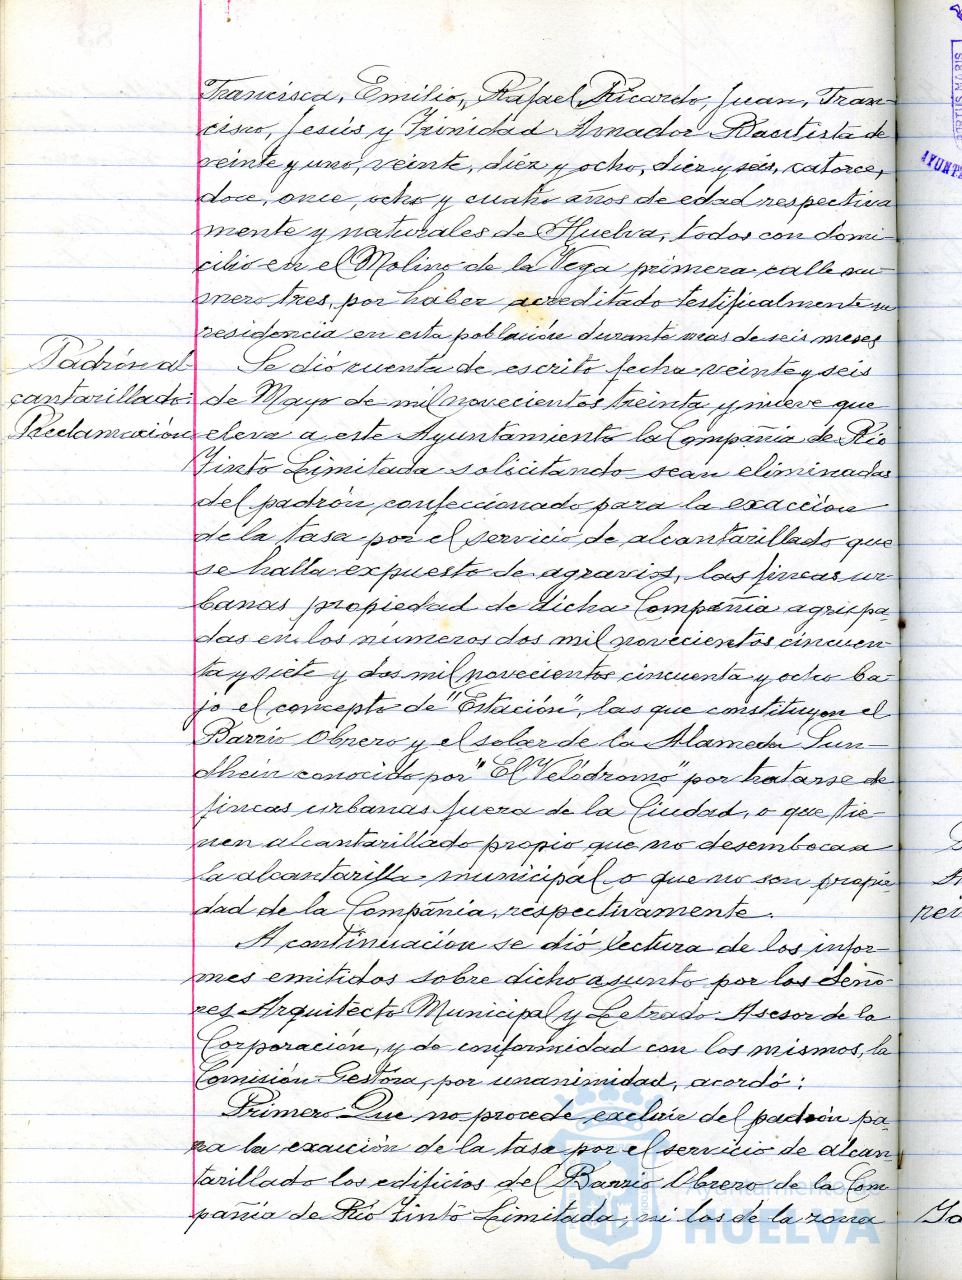 Francisca, Emilio, Rafael, Ricardo, Juan, Fran-
cisco, Jesús y Trinidad Amador Bautista de
veinte y uno, veinte, diez y ocho, diez y seis, catorce,
doce, once, ocho y cuatro años de edad respectiva
mente y naturales de Huelva, todos con domi-
cilio en el Molino de la Vega primera calle nu-
mero tres, por haber acreditado testificalmente su
residencia en esta población durante mas de seis meses
Padrón al-
cantarillado:
Reclamación
Se dió cuenta de escrito fecha veinte y seis
de Mayo de mil novecientos treinta y nueve que
eleva a este Ayuntamiento la Compañia de Rio
Tinto Limitada solicitando sean eliminadas
del padrón confeccionado para la exacción
de la tasa por el servicio de alcantarillado que
se halla expuesto de agravios, las fincas ur-
banas propiedad de dicha Compañia agrupa-
das en los números dos mil novecientos cincuen-
ta y siete y dos mil novecientos cincuenta y ocho ba-
jo el concepto de "Estación", las que constituyen el
Barrio Obrero y el solar de la Alameda Sun-
dhein conocido por "El Velódromo" por tratarse de
fincas urbanas fuera de la Ciudad, o que tie-
nen alcantarillado propio que no desemboca a
la alcantarilla municipal o que no son propie-
dad de la Compañia, respectivamente.
A continuación se dió lectura de los infor-
mes emitidos sobre dicho asunto por los Seño-
res Arquitecto Municipal y Letrado Asesor de la
Corporación, y de conformidad con los mismos, la
Comisión Gestora, por unanimidad, acordó:
Primero. Que no procede excluir del padrón pa-
ra la exacción de la tasa por el servicio de alcan-
tarillado los edificios del Barrio Obrero de la Com-
pañia de Rio Tinto Limitada, ni los de la zona
Ayuntamiento de
HUELVA
PORTUS MARIS
AYUNTA